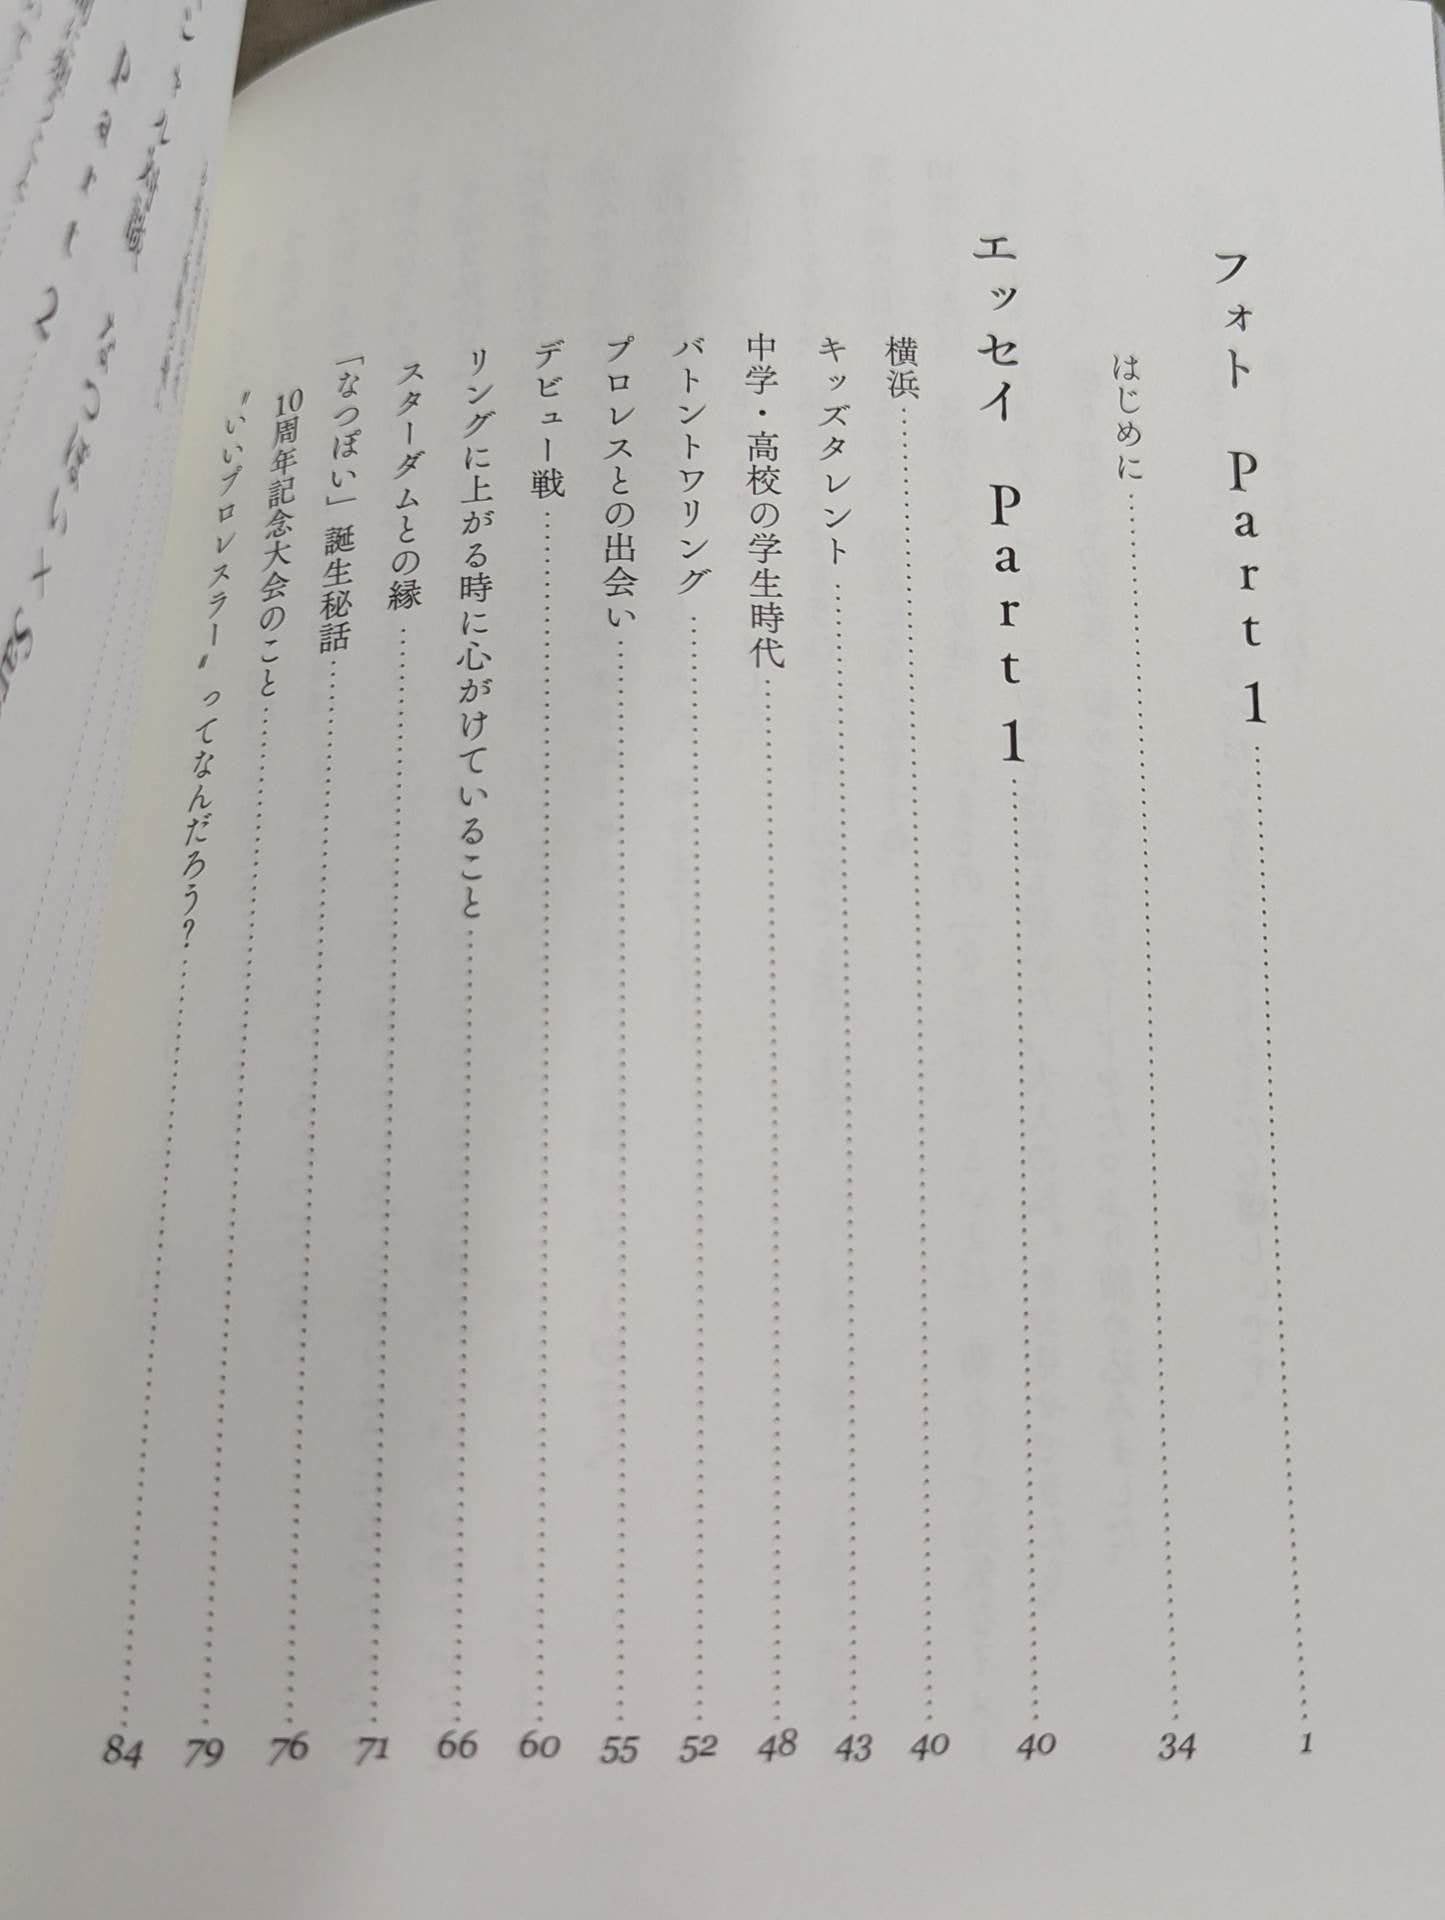 フォト Part 1 1
はじめに 34
エッセイ Part 1 40
横浜 40
キッズタレント 43
中学・高校の学生時代 48
バトントワリング 52
プロレスとの出会い 55
デビュー戦 60
リングに上がる時に心がけていること 66
スターダムとの縁 71
「なつぽい」誕生秘話 76
10周年記念大会のこと 79
〝いいプロレスラー〟ってなんだろう? 84